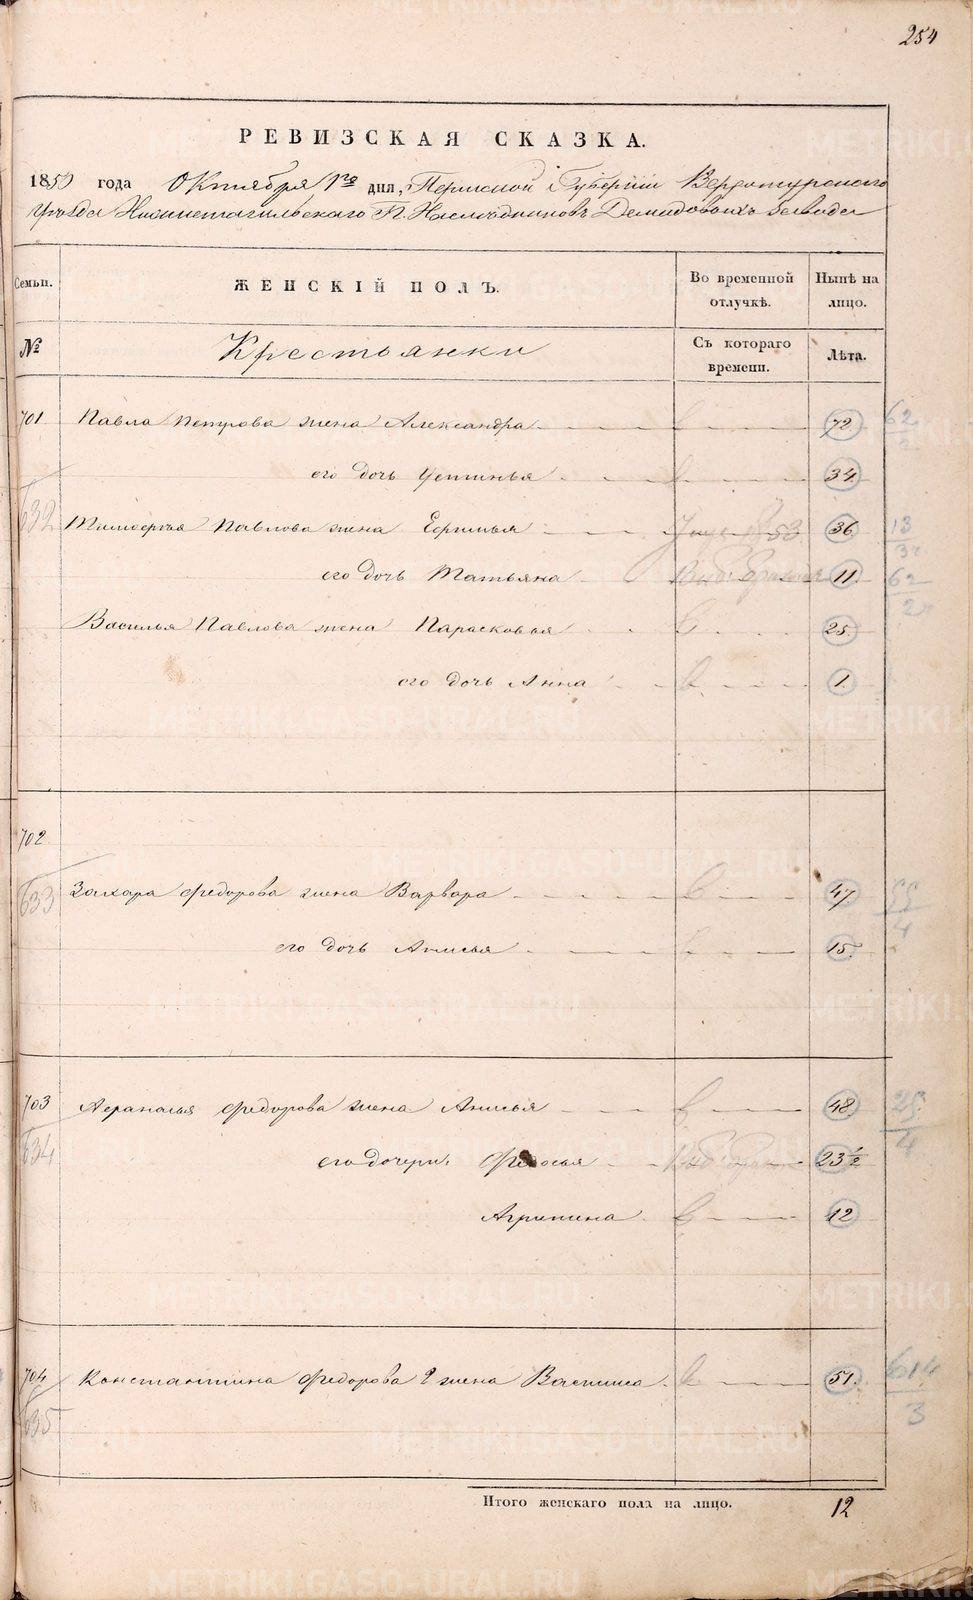 254
РЕВИЗСКАЯ СКАЗКА.
1850 года Октября 1го дня, Пермской Губерніи Верхотурскаго
Уѣзда Нижнетагильскаго Гг. Наслѣдниковъ Демидовыхъ завода
Семьи. ЖЕНСКІЙ ПОЛЪ. Во временной отлучкѣ. Нынѣ на лицо.
№ Крестьянки Съ котораго времени. Лѣта.
701 Павла Петрова жена Александра 72 62
его дочь Устинья 34
632 Тимофѣя Павлова жена Ефимья 53 36 13
его дочь Татьяна 11 62
Василья Павлова жена Парасковья 25
его дочь Анна 1.
702
633 Захара Федорова жена Варвара 47 4
его дочь Анисья 15
703 Афанасья Федорова жена Анисья 48 25
4
634 его дочери: Федосья 23½
Агрипина 12
704 Константина Федорова 2 жена Васииса 51. 614
3
635
Итого женскаго пола на лицо. 12
METRIKI.GASO-URAL.RU